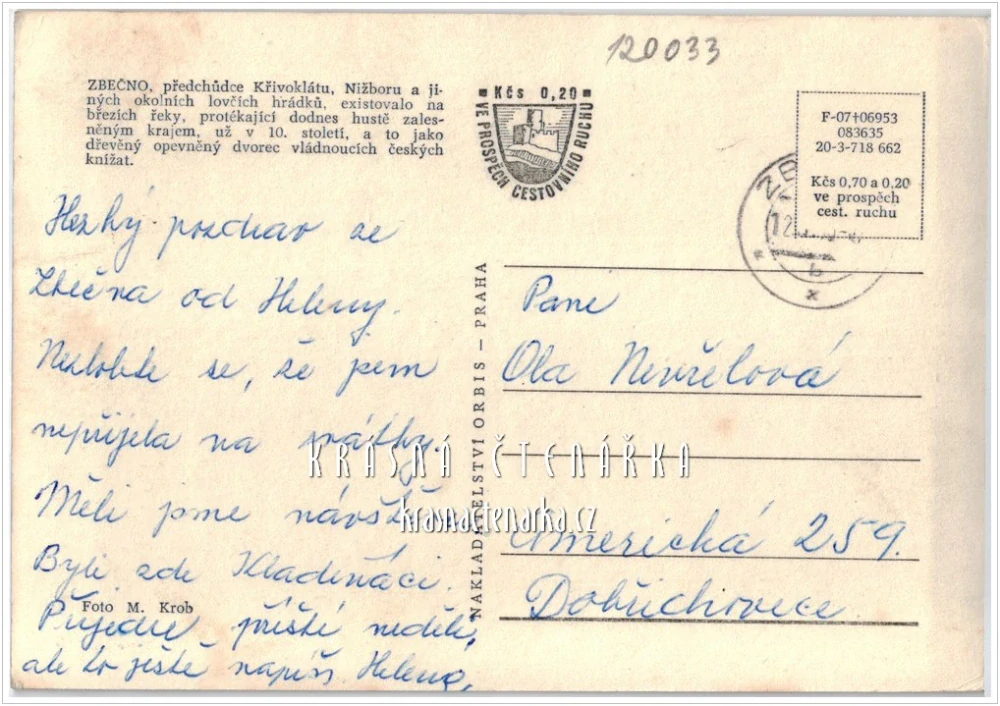 120033
ZBEČNO, předchůdce Křivoklátu, Nižboru a ji-
ných okolních lovčích hrádků, existovalo na
březích řeky, protékající dodnes hustě zales-
něným krajem, už v 10. století, a to jako
dřevěný opevněný dvorec vládnoucích českých
knížat.
Kčs 0,20
VE PROSPĚCH CESTOVNÍHO RUCHU
F-07+06953
083635
20-3-718 662
Kčs 0,70 a 0,20
ve prospěch
cest. ruchu
b
Hezký pozdrav ze
Zbečna od Heleny.
Nezlobte se, že jsem
nepřijela na svátky.
Měli jsme
Byli zde Kladeňáci.
Foto M. Krob
Přijedu příští neděli,
ale to ještě napíši Helena,
NAKLADATELSTVÍ ORBIS – PRAHA
Paní
Ola Nevřelová
Americká 259.
Dobřichovice
KRÁSNÁ ČTENÁŘKA
krasnactenarka.cz